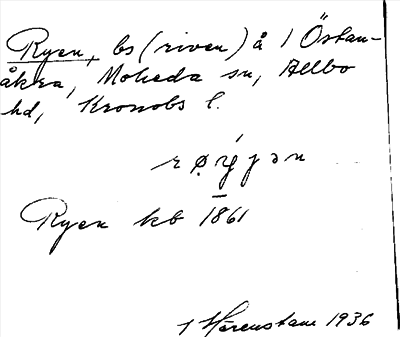 Ryen, bs (riven) å 1 Östan-
åkra, Moheda sn, Allbo
hd, Kronobs l.
Ryen kb 1861
1936